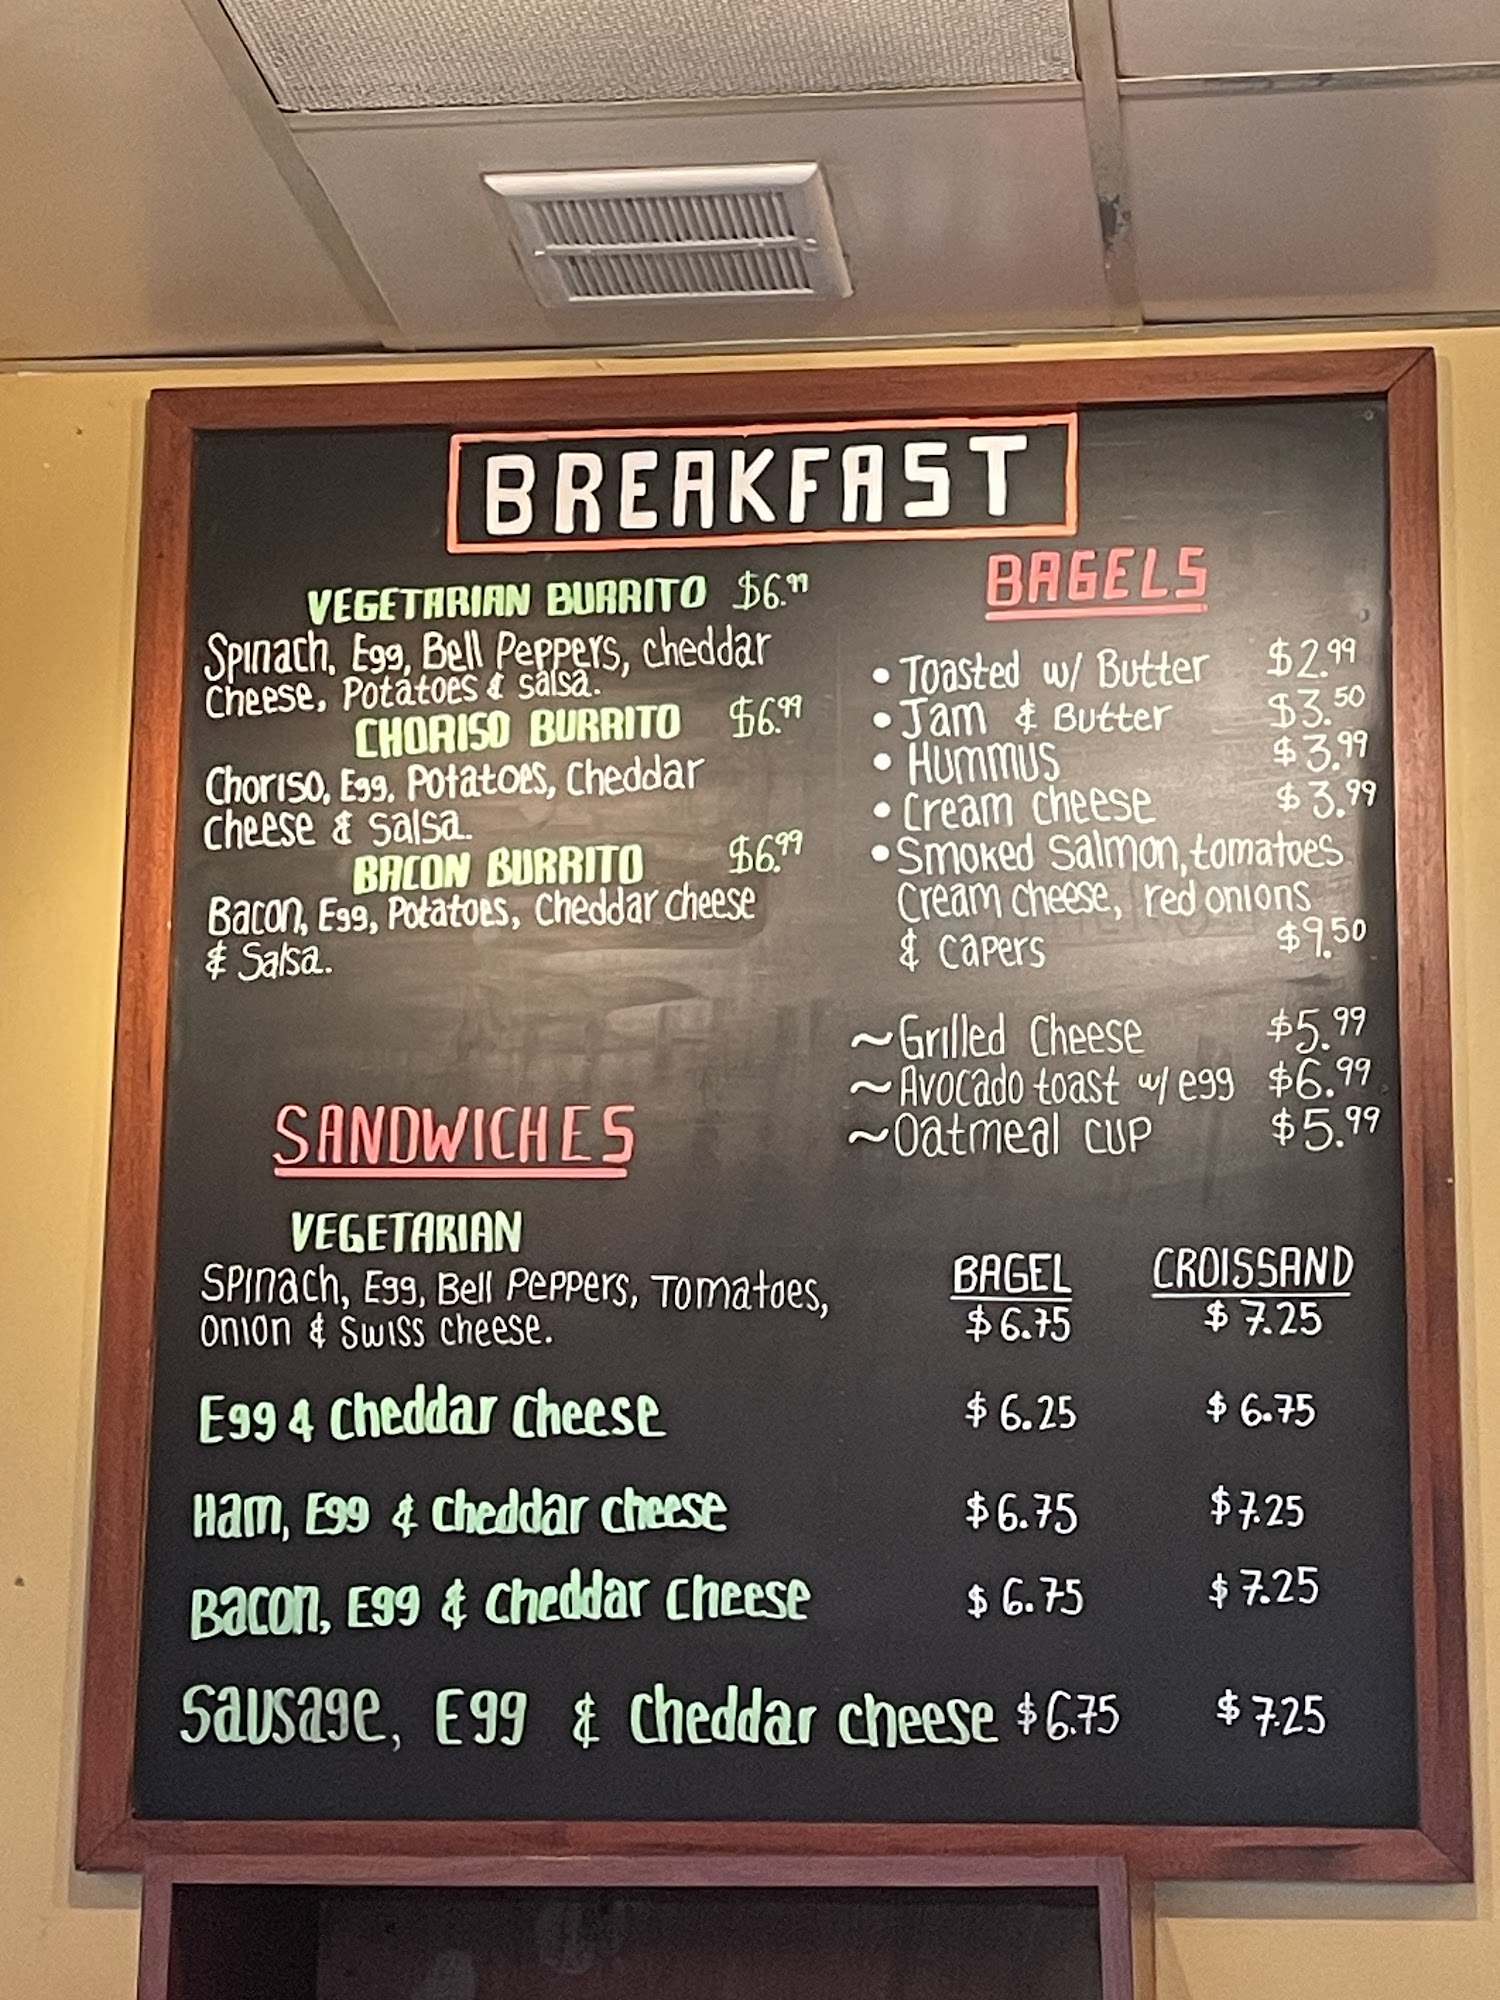 BREAKFAST
VEGETARIAN BURRITO $6.99
Spinach, Egg, Bell Peppers, cheddar
Cheese, Potatoes & salsa.
CHORISO BURRITO $6.99
Choriso, Egg, Potatoes, Cheddar
cheese & salsa.
BACON BURRITO $6.99
Bacon, Egg, Potatoes, Cheddar cheese
& Salsa.
BAGELS
• Toasted w/ Butter $2.99
• Jam & Butter $3.50
• Hummus $3.99
• Cream cheese $3.99
• Smoked Salmon, tomatoes
Cream cheese, red onions
& capers $9.50
~ Grilled Cheese $5.99
~ Avocado toast w/ egg $6.99
~ Oatmeal cup $5.99
SANDWICHES
BAGEL CROISSAND
VEGETARIAN
Spinach, Egg, Bell Peppers, Tomatoes, $6.75 $7.25
onion & swiss cheese.
Egg & cheddar cheese $6.25 $6.75
Ham, Egg & cheddar cheese $6.75 $7.25
Bacon, Egg & cheddar cheese $6.75 $7.25
Sausage, Egg & cheddar cheese $6.75 $7.25